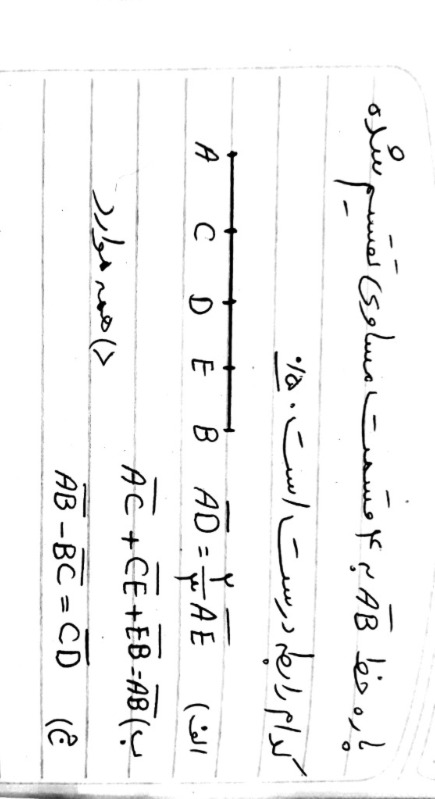 پاره خط AB به ۴ قسمت مساوی تقسیم شده
کدام رابطه درست است. ۰/۵
A C D E B
الف) AD = ۲/۳ AE
ب) AC + CE + EB = AB
ج) AB - BC = CD
د) همه موارد